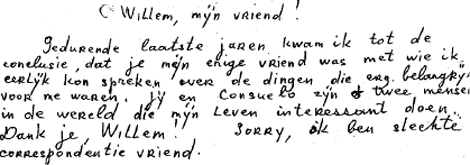 Willem, mÿn vriend!
Gedurende laatste jaren kwam ik tot de
conclusie, dat je mÿn enige vriend was met wie ik
eerlÿk kon spreken over de dingen die erg belangrÿk
voor me waren. Jÿ en Consuelo zÿn twee mensen
in de wereld die mÿn leven interessant doen.
Dank je, Willem! Sorry, ik ben slechte
correspondentie vriend.